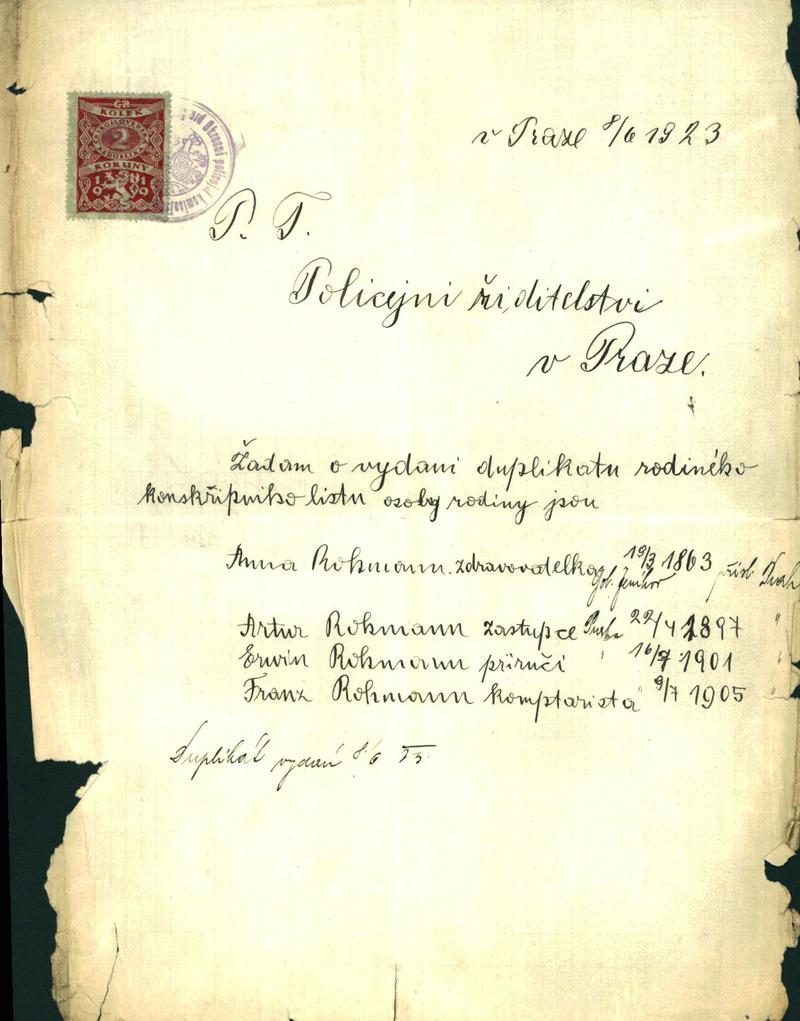 KOLEK
ČESKOSLOVENSKÁ
2
KORUNY
1919
v Praze 8/6 1923
P. T.
Policejni řiditelstvi
v Praze.
Žadam o vydani duplikatu rodiného
konskřipniho listu osoby rodiny jsou
Anna Rohmann zdravovatelka 19/3 1863 přísl.
Gol. Jenikov
Artur Rohmann zastupce Praha 22/4 1897 "
Erwin Rohmann přiručí " 16/7 1901 "
Franz Rohmann komptarista " 9/7 1905 "
Duplikát vydán 8/6 23.